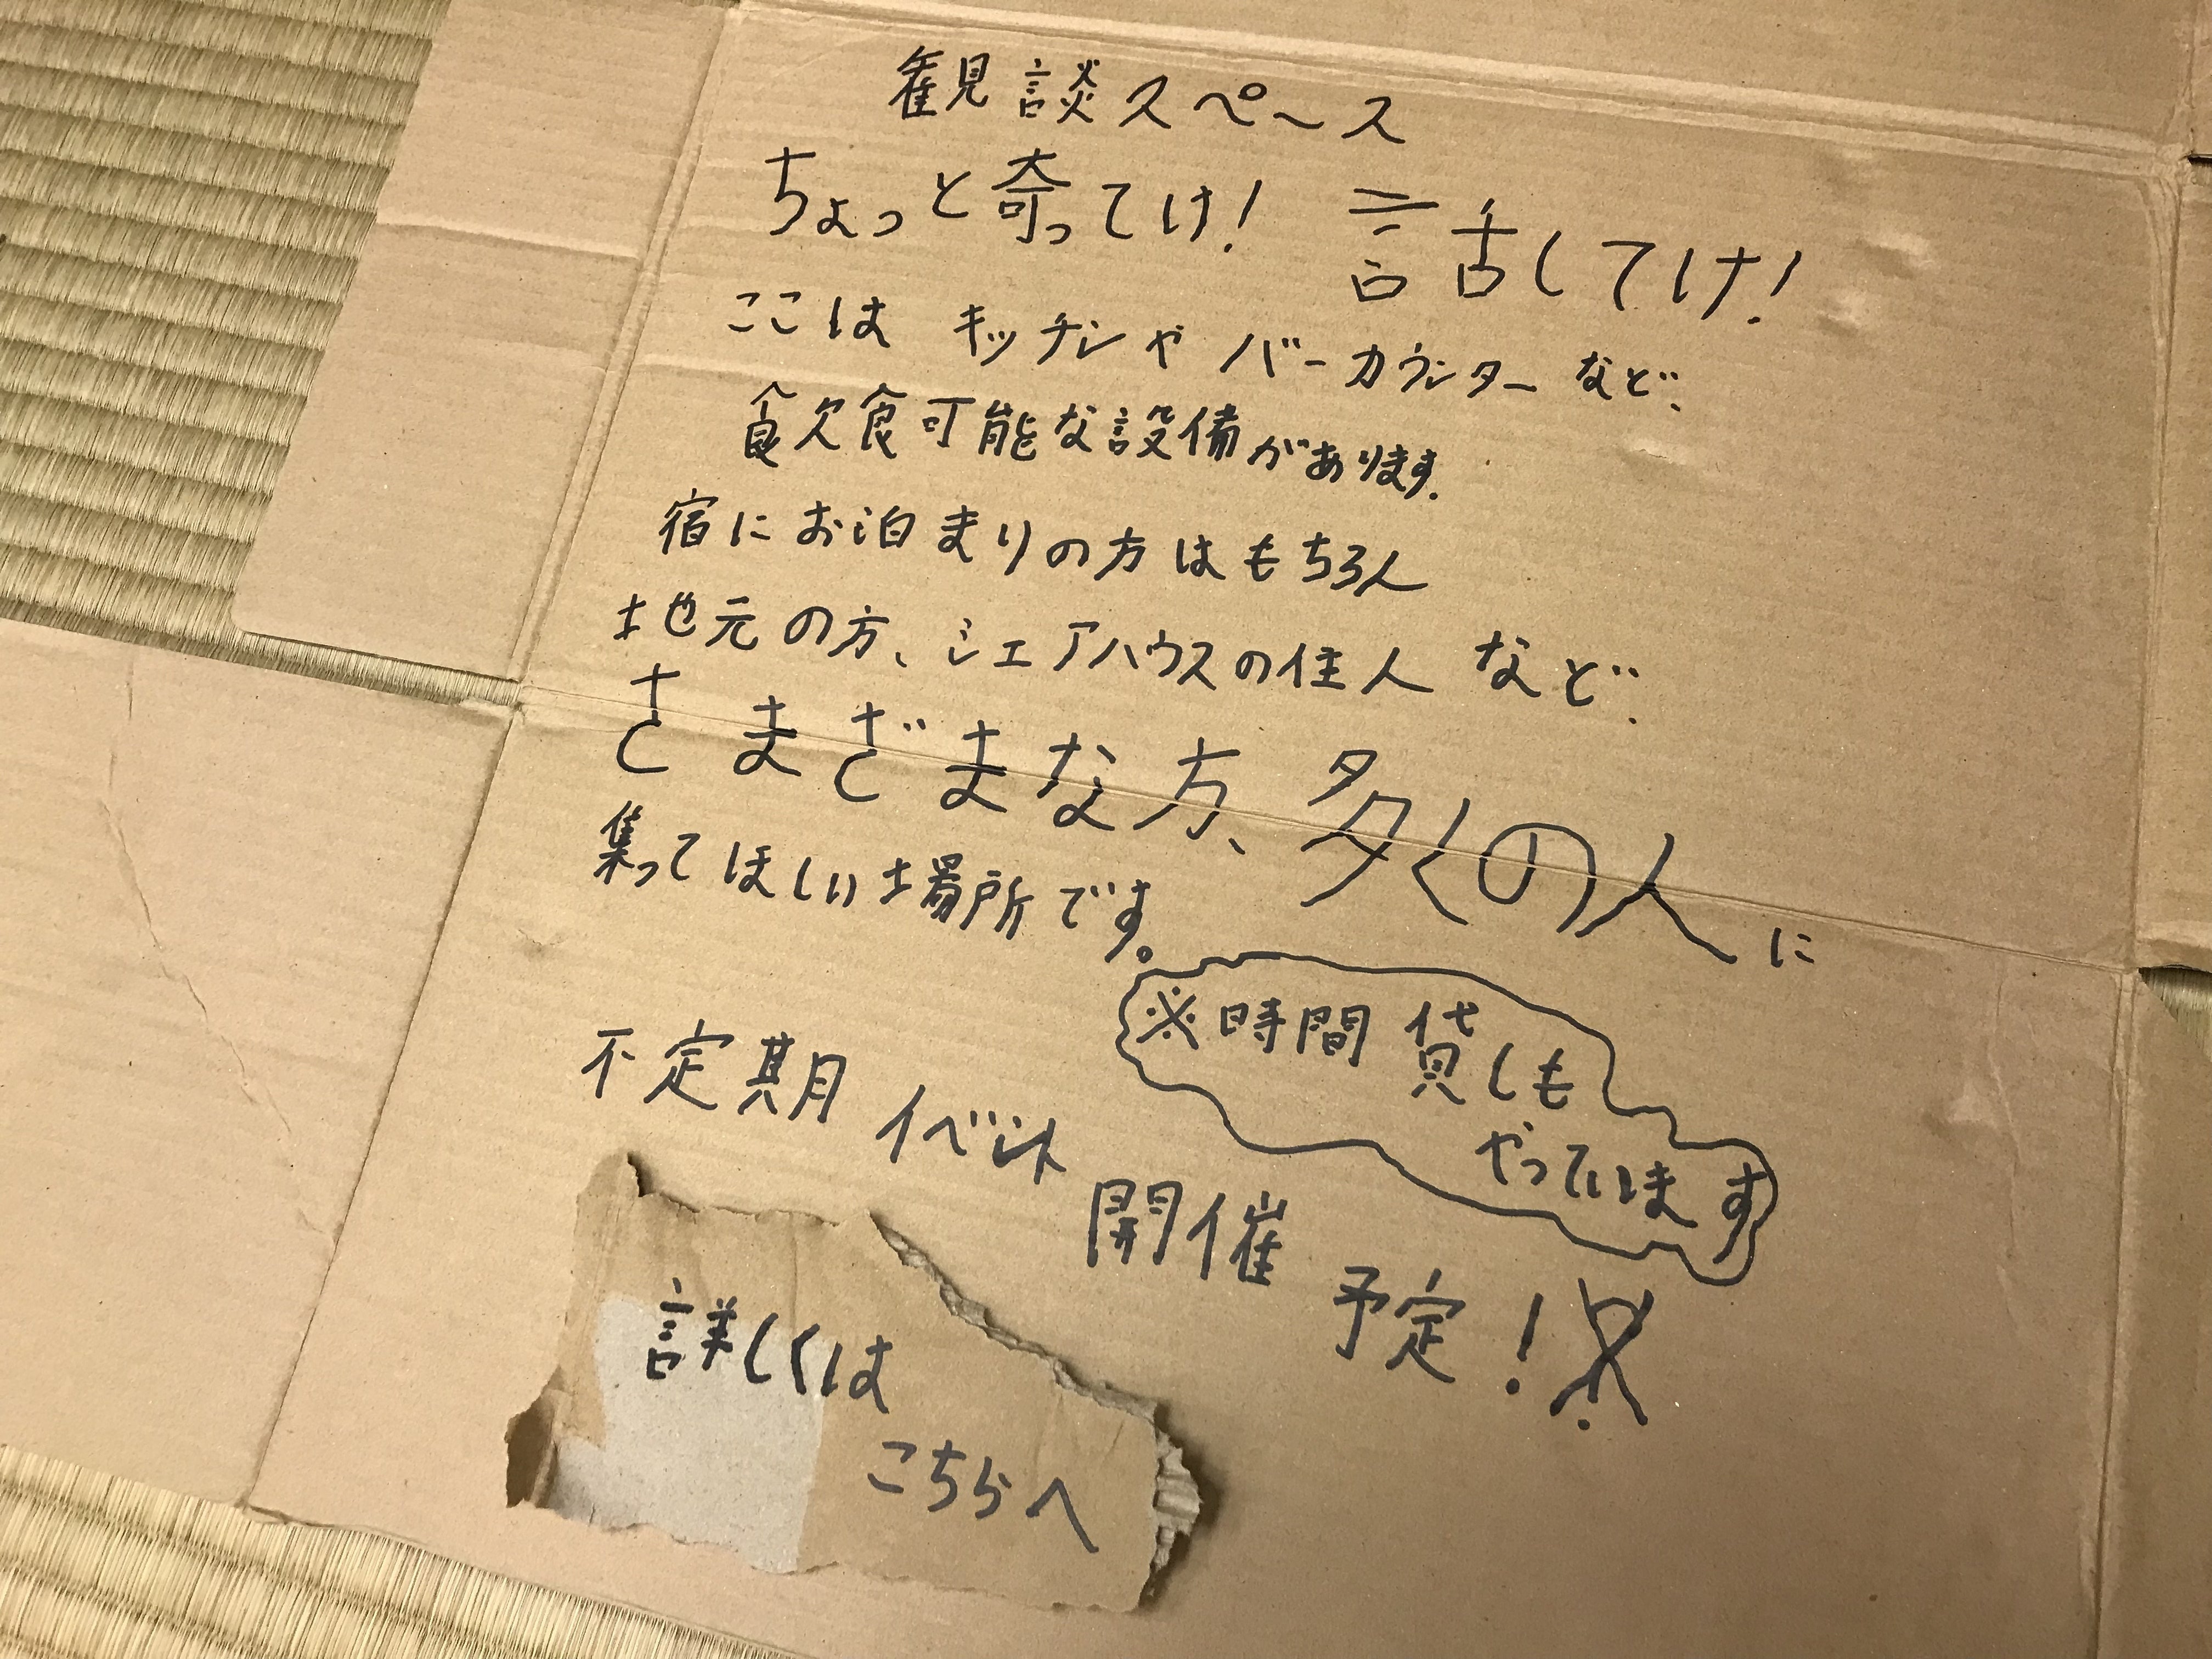 観談スペース
ちょっと奇ってけ! 話してけ!
ここは キッチンや バーカウンターなど、
飲食可能な設備があります.
宿にお泊まりの方はもちろん
地元の方、シェアハウスの住人 など、
さまざまな方、多くの人に
集ってほしい場所です。
※時間貸しも
やっています
不定期イベント
開催 予定!
詳しくは
こちらへ